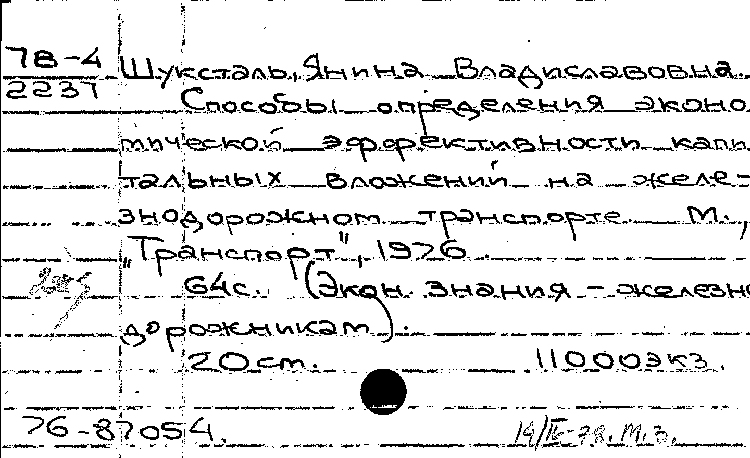 78-4
2237
Шуксталь, Янина Владиславовна.
Способы определения эконо
мической эффективности капи
тальных вложений на желе-
знодорожном транспорте. М.,
"Транспорт", 1976.
64с. (Экон. знания - железно
дорожникам).
20 см. 11000 экз.
76-87054.
19/IV-78. М.З.